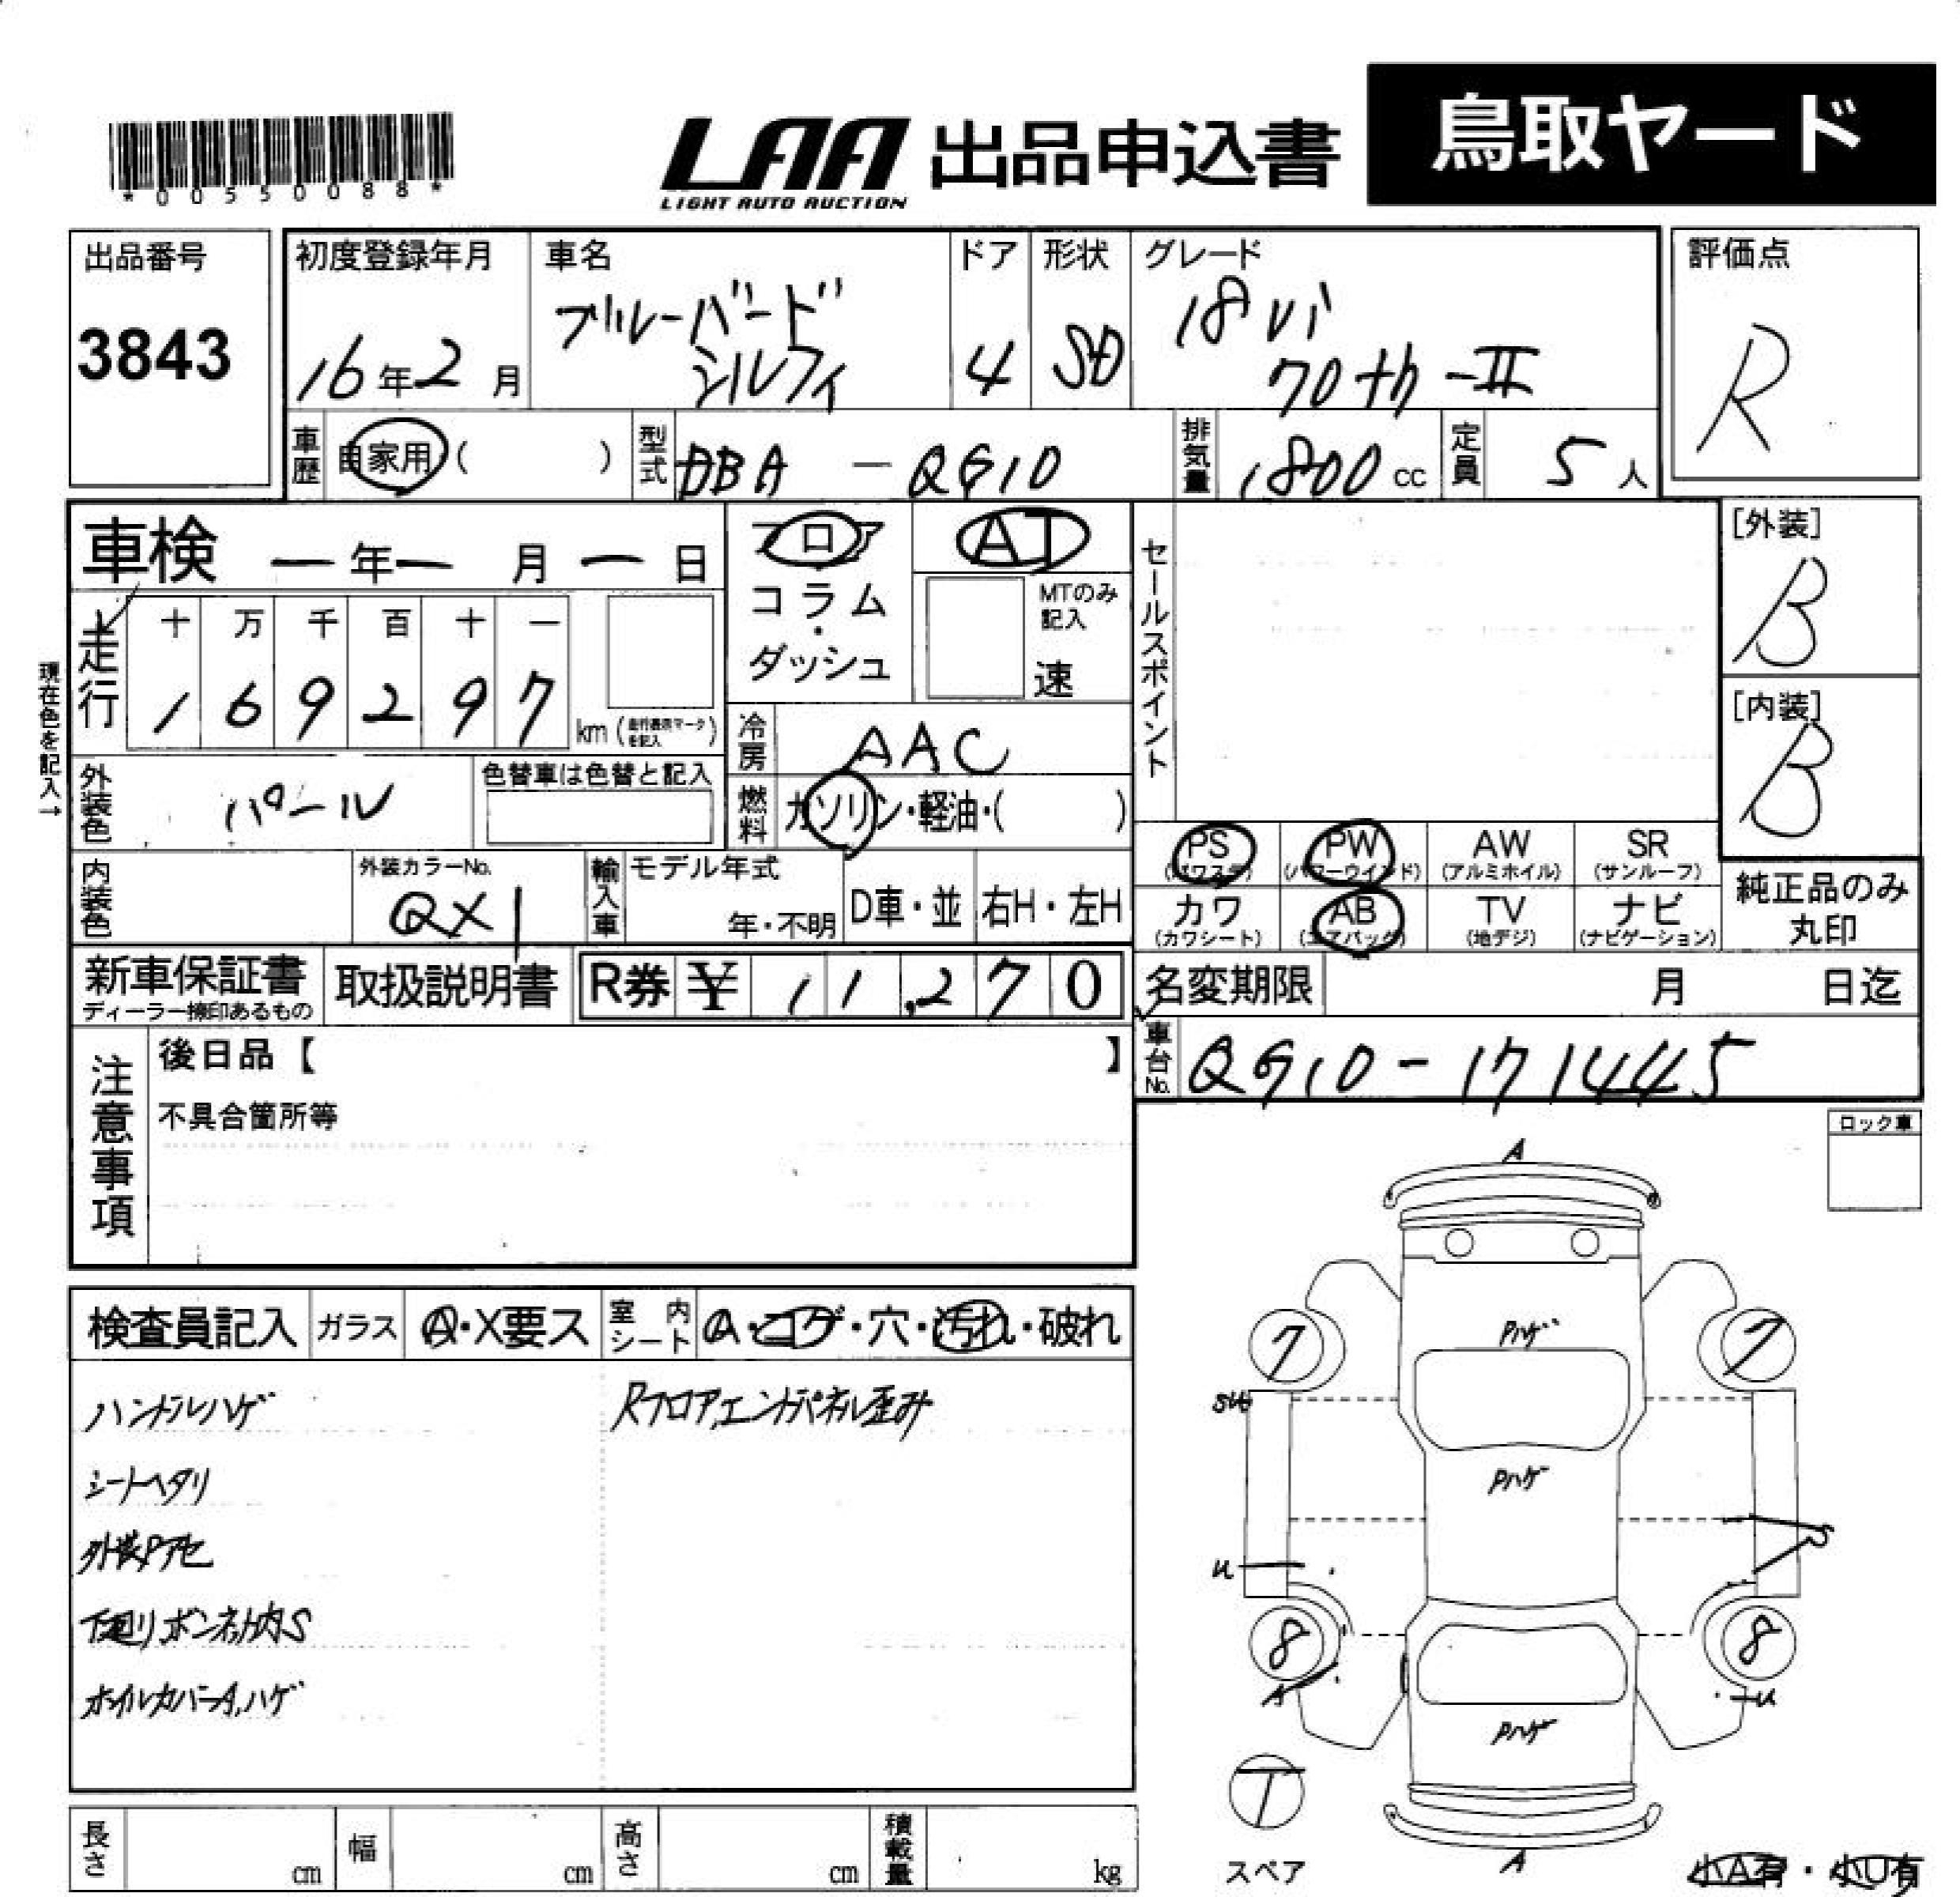 鳥取ヤード
LAA 出品申込書
LIGHT AUTO AUCTION
*00550088*
出品番号
3843
初度登録年月
16年2月
車名
ブルーバード
シルフィ
ドア
4
形状
SD
グレード
18Vi
70th-II
評価点
R
車歴 自家用 ( )
型式 DBA - QG10
排気量 1800 cc
定員 5 人
車検 ー年ー月ー日
フロア
コラム
・
ダッシュ
AT
MTのみ
記入
速
セールスポイント
[外装]
B
[内装]
B
現在色を記入→
走行
十 万 千 百 十 一
1 6 9 2 9 7 km
冷房 AAC
燃料 ガソリン・軽油・( )
外装色 パール
色替車は色替と記入
内装色
外装カラーNo.
QX1
輸入車
モデル年式
年・不明
D車・並
右H・左H
PS
(パワステ)
PW
(パワーウインド)
AW
(アルミホイル)
SR
(サンルーフ)
カワ
(カワシート)
AB
(エアバッグ)
TV
(地デジ)
ナビ
(ナビゲーション)
純正品のみ
丸印
新車保証書
ディーラー捺印あるもの
取扱説明書
R券 ¥ 11,270
名変期限 月 日迄
車台No. QG10-171445
注意事項
後日品【 】
不具合箇所等
ロック車
検査員記入
ガラス A・X要ス
室内シート A・コゲ・穴・汚れ・破れ
ハンドルハゲ
シートヘタリ
外装Pアセ
下廻リ ボンネット内S
ホイルカバーA,ハゲ
Rフロア,エンドパネル歪み
A
7
7
Pハゲ
Pハゲ
U
8
8
A
U
Pハゲ
T
スペア
A
小A有・小U有
長さ cm
幅 cm
高さ cm
積載量 kg